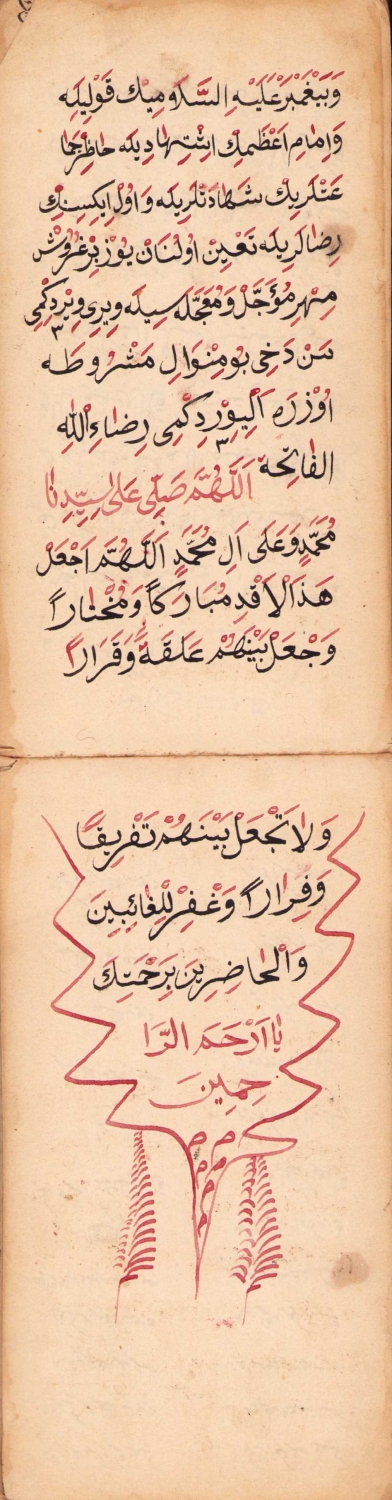 وَپَيْغَمْبَرْ عَلَيْهِ السَّلَاومِيڭ قَوْلِيلَه
وَاِمَامِ اَعْظَمِڭ اِشْتِهَادِيلَه حَاظِر جَمَا
عَتْلَرِيڭ شَهَادَتْلَرِيلَه وَ اوُل ايكِسِنِڭ
رِضَالَرِيلَه تَعْيِن اوُلُنَان يُوز بِرْ غُرُوشْ
مِهْرِ مُؤَجَّل وَ مُعَجَّلَه سِيلَه وِيرِى وِيرْدِڭمِى
٣
سَن دَخِى بُو مِنْوَال مَشْرُوطَه
اوُزْرَه آلِيوُرْدِڭمِى رِضَاءِ اللّٰه
٣
الفَاتِحَة اَللّٰهُمَّ صَلِّى عَلَى سَيِّدِنَا
مُحَمَّدٍ وَعَلَى اَلِ مُحَمَّدٍ اَللّٰهُمَّ اجْعَلْ
هَذَالْاَقْدِ مُبَارَكًا وَمُخْتَاراً
وَجْعَلْ بَيْنَهُمْ عَلَقَةً وَقَرَاراً
وَلَا تَجْعَلْ بَيْنَهُمْ تَفْرِيقًا
وَفِرَاراً وَغْفِرْ لِلْغَائِبِينَ
وَالْحَاضِرِينَ بِرَحْمَتِكَ
يَا اَرْحَمَ الرَّا
حِمِينَ